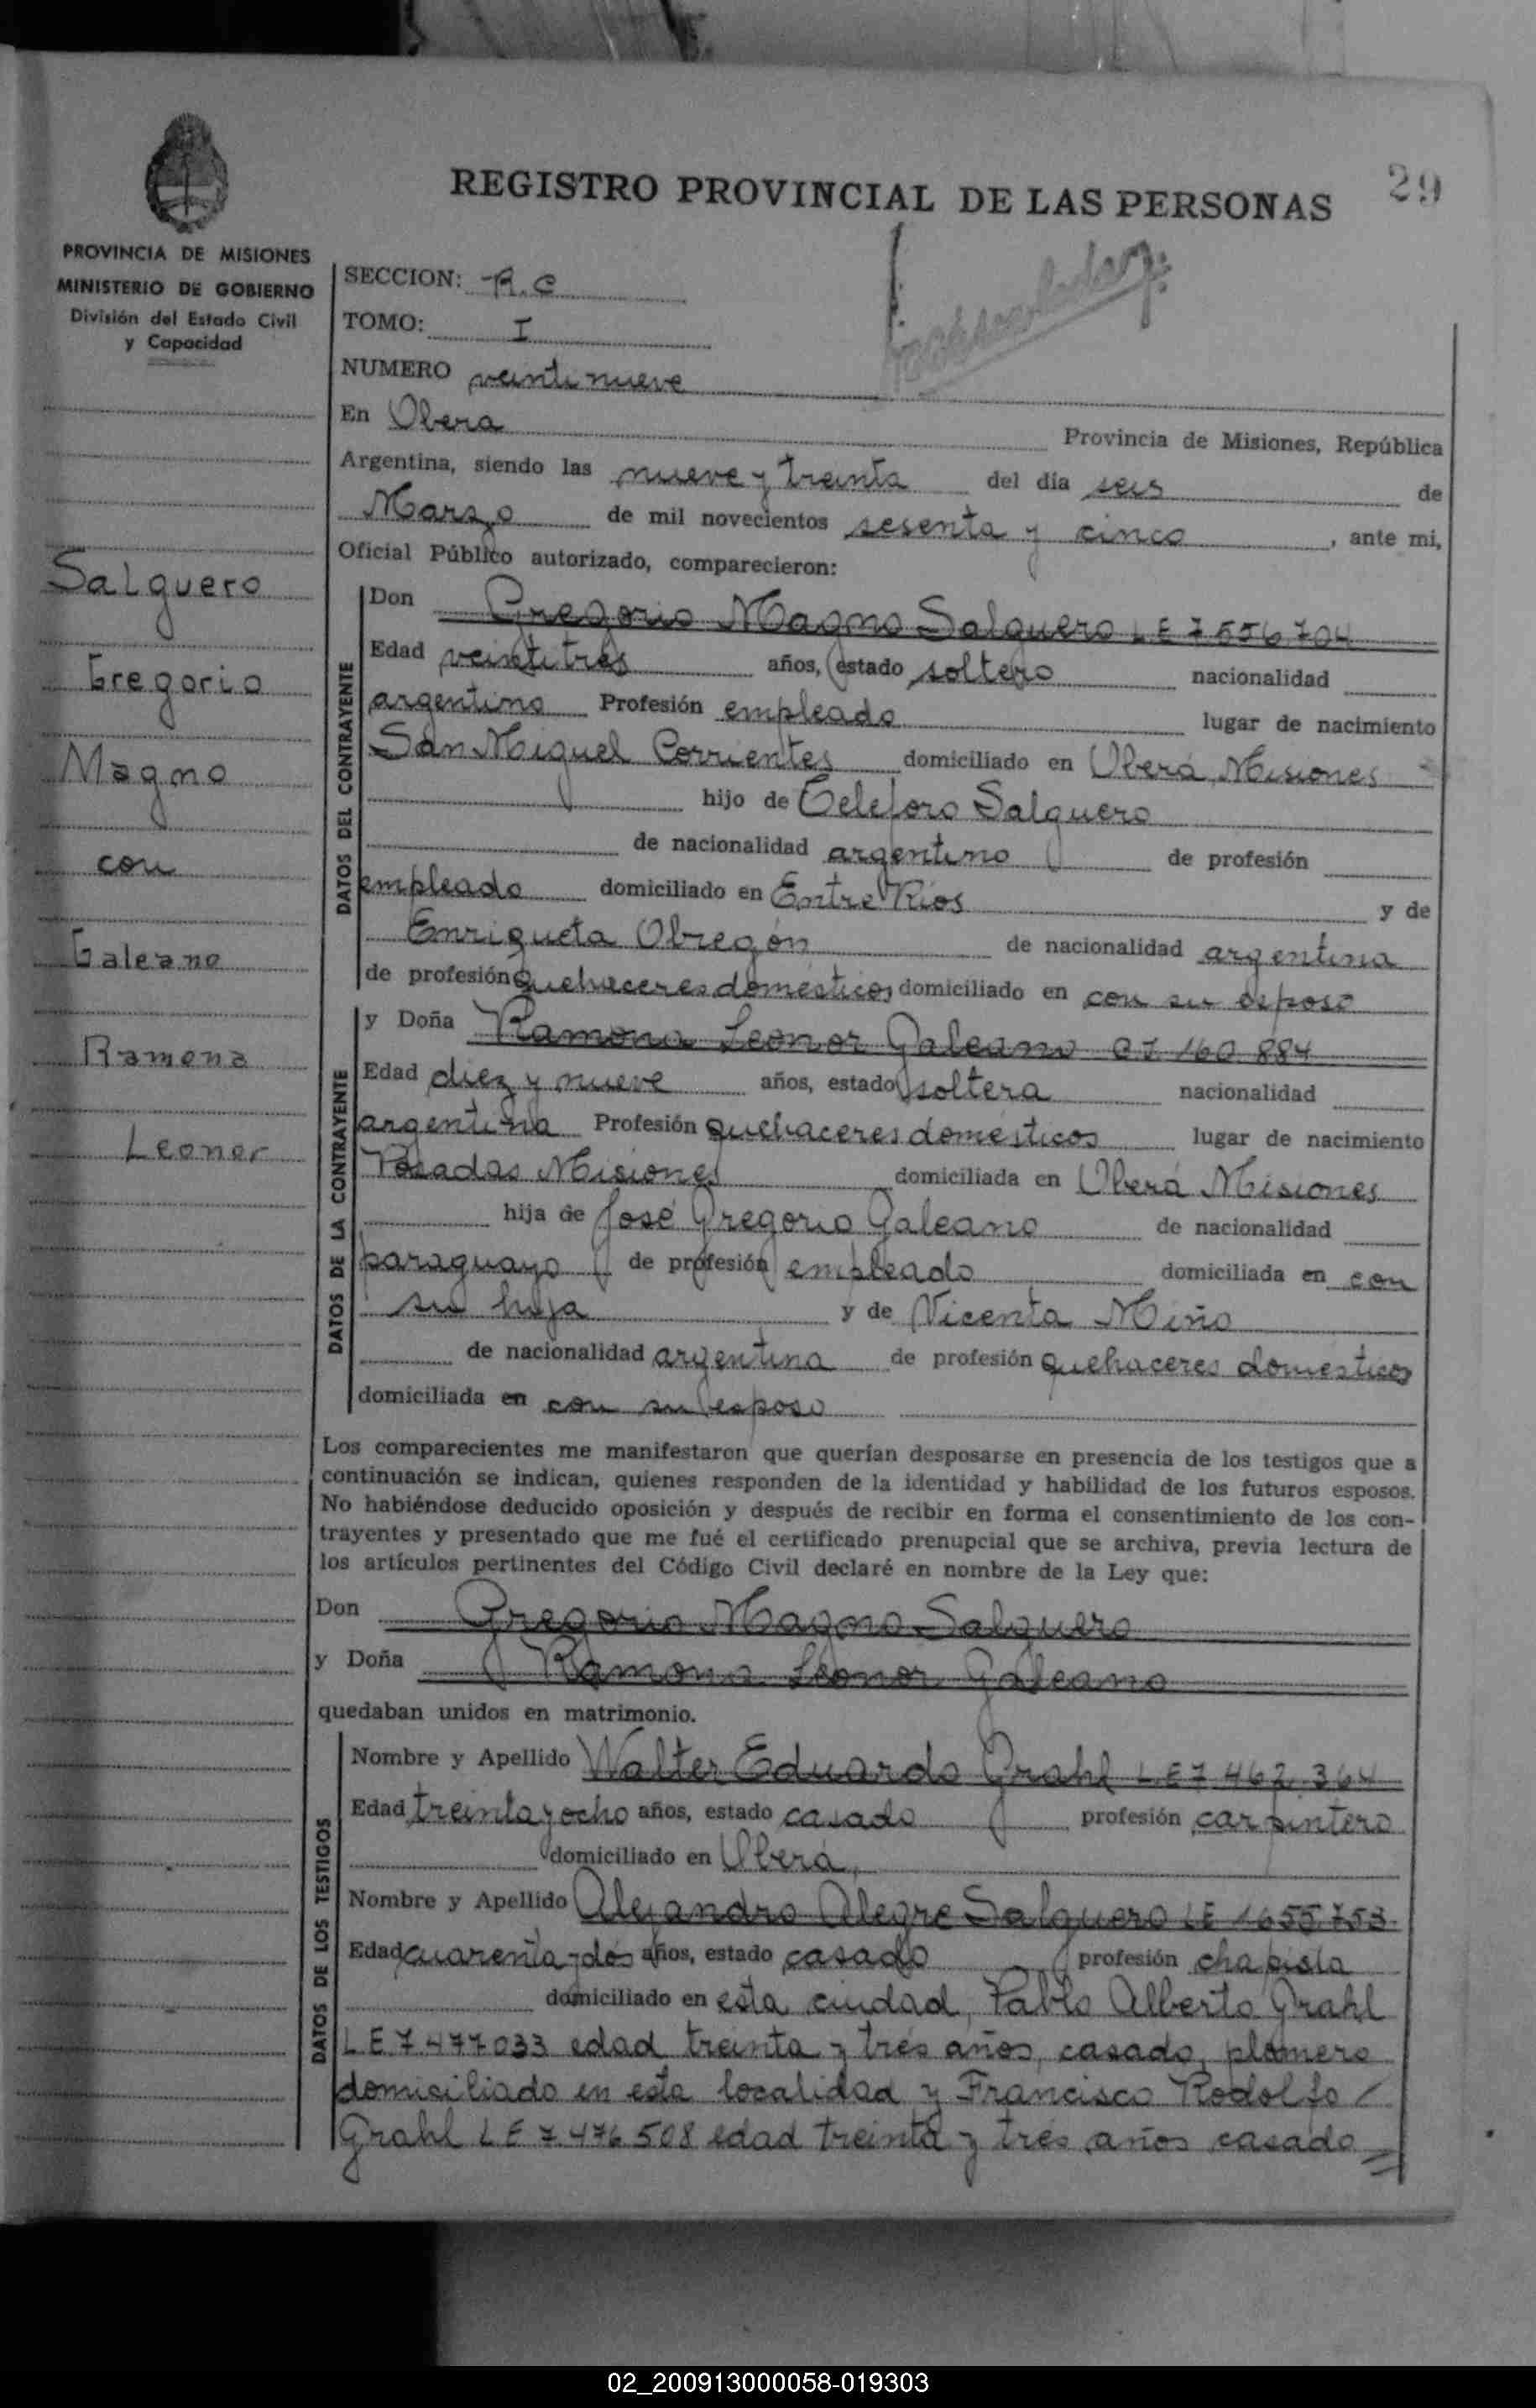 REGISTRO PROVINCIAL DE LAS PERSONAS
29
PROVINCIA DE MISIONES
MINISTERIO DE GOBIERNO
División del Estado Civil
y Capacidad
Salguero
Gregorio
Magno
con
Galeano
Ramona
Leonor
SECCION: R.C
TOMO: I
NUMERO veintinueve
En Obera Provincia de Misiones, República
Argentina, siendo las nueve y treinta del día seis de
Marzo de mil novecientos sesenta y cinco, ante mi,
Oficial Público autorizado, comparecieron:
DATOS DEL CONTRAYENTE
Don Gregorio Magno Salguero LE 7.556.704
Edad veintitres años, estado soltero nacionalidad
argentino Profesión empleado lugar de nacimiento
San Miguel Corrientes domiciliado en Oberá, Misiones
hijo de Telesforo Salguero
de nacionalidad argentino de profesión
empleado domiciliado en Entre Rios y de
Enriqueta Obregón de nacionalidad argentina
de profesión quehaceres domésticos domiciliado en con su esposo
DATOS DE LA CONTRAYENTE
y Doña Ramona Leonor Galeano CI 160.884
Edad diez y nueve años, estado soltera nacionalidad
argentina Profesión quehaceres domésticos lugar de nacimiento
Posadas Misiones domiciliada en Oberá Misiones
hija de José Gregorio Galeano de nacionalidad
paraguayo de profesión empleado domiciliada en con
su hija y de Vicenta Miño
de nacionalidad argentina de profesión quehaceres domésticos
domiciliada en con su esposo
Los comparecientes me manifestaron que querían desposarse en presencia de los testigos que a
continuación se indican, quienes responden de la identidad y habilidad de los futuros esposos.
No habiéndose deducido oposición y después de recibir en forma el consentimiento de los con-
trayentes y presentado que me fué el certificado prenupcial que se archiva, previa lectura de
los artículos pertinentes del Código Civil declaré en nombre de la Ley que:
Don Gregorio Magno Salguero
y Doña Ramona Leonor Galeano
quedaban unidos en matrimonio.
DATOS DE LOS TESTIGOS
Nombre y Apellido Walter Eduardo Grahl LE 7.462.364
Edad treinta y ocho años, estado casado profesión carpintero
domiciliado en Oberá,
Nombre y Apellido Alejandro Alegre Salguero LE 1655.753
Edad cuarenta y dos años, estado casado profesión chapista
domiciliado en esta ciudad, Pablo Alberto Grahl
LE 7.477.033 edad treinta y tres años, casado, plomero
domiciliado en esta localidad y Francisco Rodolfo /
Grahl LE 7.476.508 edad treinta y tres años casado =
02_200913000058-019303